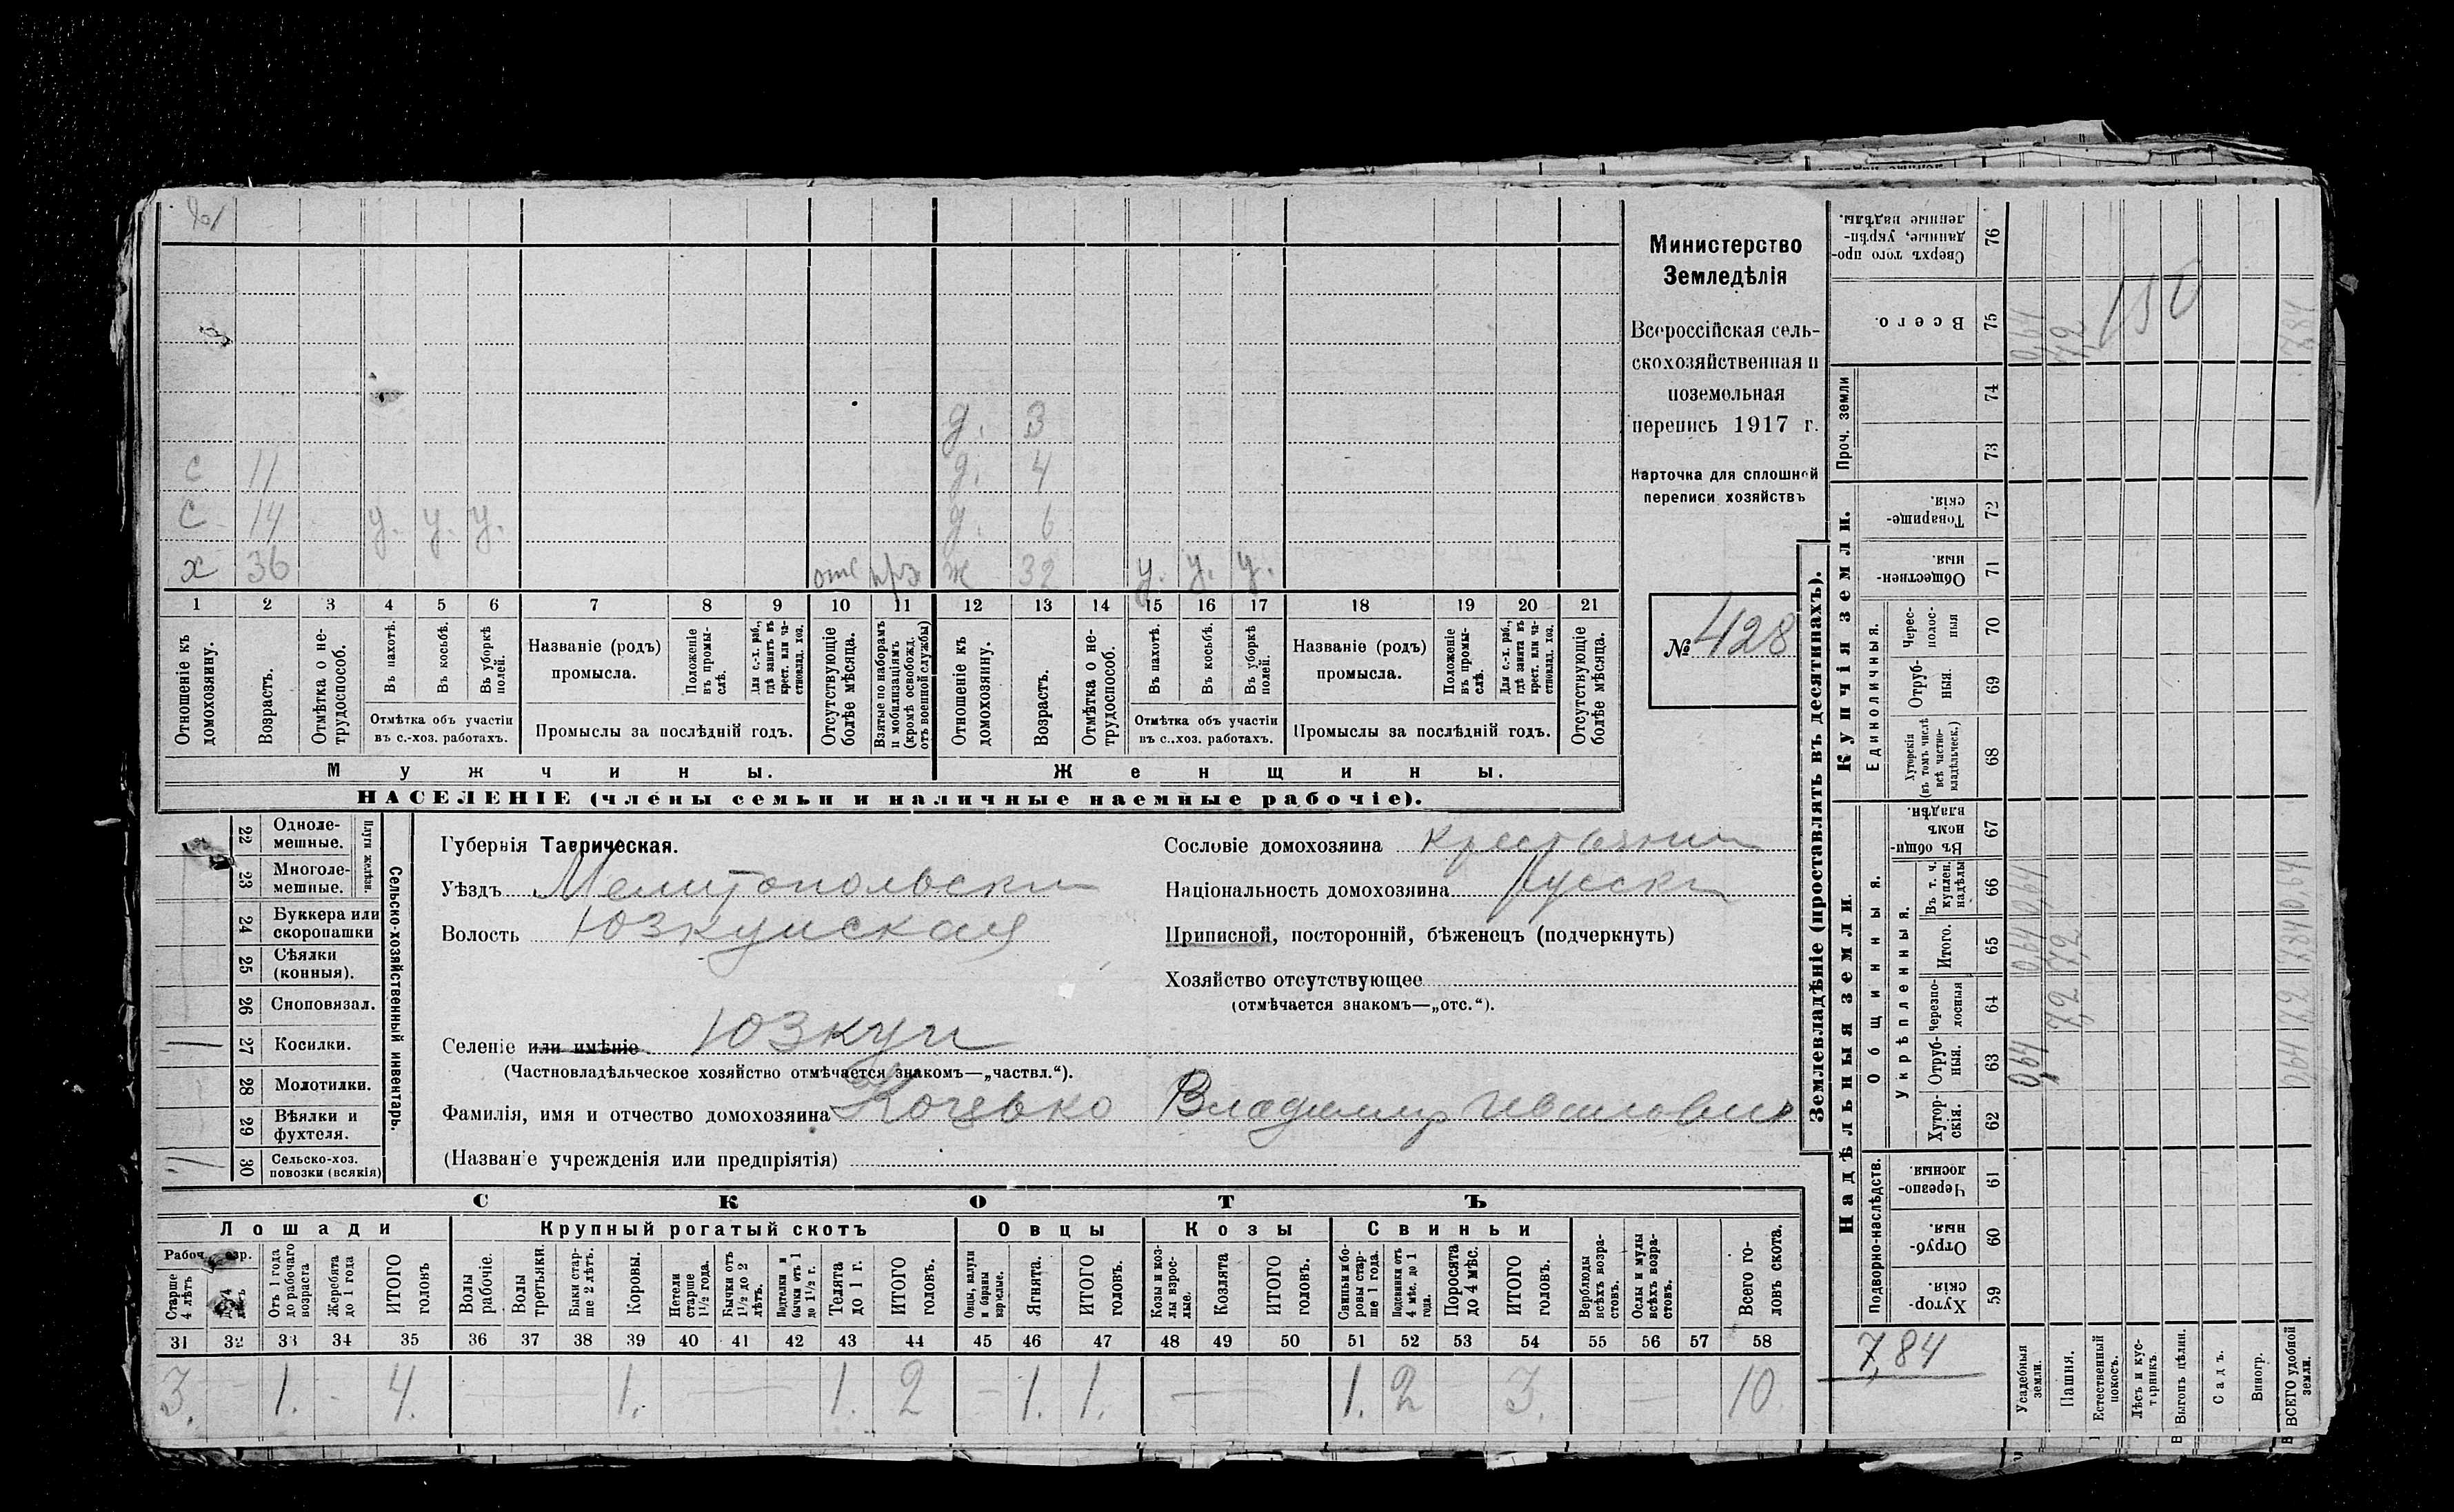 Министерство
Земледѣлія
Всероссійская сель-
скохозяйственная и
поземельная
перепись 1917 г.
Карточка для сплошной
переписи хозяйствъ
№ 428
д. 3
с 11 д. 4
с. 14 у. у. у. д. 6
х 36 отс ж 32 у. у. у.
1 2 3 4 5 6 7 8 9 10 11 12 13 14 15 16 17 18 19 20 21
Отношеніе къ домохозяину.
Возрастъ.
Отмѣтка о не-трудоспособ.
Въ пахотѣ.
Въ косьбѣ.
Въ уборкѣ полей.
Отмѣтка объ участіи
въ с.-хоз. работахъ.
Названіе (родъ)
промысла.
Положеніе въ промы-слѣ.
Для с.-х. раб., гдѣ занятъ въ крест. или ча-стновлад. хоз.
Промыслы за послѣдній годъ.
Отсутствующіе болѣе мѣсяца.
Взятые по наборамъ и мобилизаціямъ (кромѣ освобожд. отъ военной службы)
Отношеніе къ домохозяину.
Возрастъ.
Отмѣтка о не-трудоспособ.
Въ пахотѣ.
Въ косьбѣ.
Въ уборкѣ полей.
Отмѣтка объ участіи
въ с..хоз. работахъ.
Названіе (родъ)
промысла.
Положеніе въ промы-слѣ.
Для с.-х. раб., гдѣ занята въ крест. или ча-стновлад. хоз.
Промыслы за послѣдній годъ.
Отсутствующіе болѣе мѣсяца.
Мужчины. Женщины.
НАСЕЛЕНІЕ (члены семьи и наличные наемные рабочіе).
22 Одноле-мешные.
23 Многоле-мешные.
Плуги желѣзн.
24 Буккера или скоропашки
25 Сѣялки (конныя).
26 Сноповязал.
1 27 Косилки.
28 Молотилки.
29 Вѣялки и фухтеля.
1 30 Сельско-хоз. повозки (всякія)
Сельско-хозяйственный инвентарь.
Губернія Таврическая.
Уѣздъ Мелитопольски
Волость Юзкуйская
Селеніе или имѣніе Юзкуи
(Частновладѣльческое хозяйство отмѣчается знакомъ—„частвл.“).
Фамилія, имя и отчество домохозяина Коцевко Владимир Иванович
(Названіе учрежденія или предпріятія)
Сословіе домохозяина крестьянин
Національность домохозяина Русски
Приписной, посторонній, бѣженецъ (подчеркнуть)
Хозяйство отсутствующее
(отмѣчается знакомъ—„отс.“).
СКОТЪ
Лошади Крупный рогатый скотъ Овцы Козы Свиньи
Старше 4 лѣтъ
Отъ 1 года до рабочаго возраста
Жеребята до 1 года
ИТОГО головъ
Волы рабочіе.
Волы третьяки.
Быки стар-ше 2 лѣтъ.
Коровы.
Нетели старше 1½ года.
Бычки отъ 1½ до 2 лѣтъ.
Подтелки и бычки отъ 1 до 1½ г.
Телята до 1 г.
ИТОГО головъ.
Овцы, валухи и бараны взрослые.
Ягнята.
ИТОГО головъ.
Козы и коз-лы взрос-лые.
Козлята
ИТОГО головъ.
Свиньи и бо-ровы стар-ше 1 года.
Подсвинки отъ 4 мѣс. до 1 года.
Поросята до 4 мѣс.
ИТОГО головъ.
Верблюды всѣхъ возра-стовъ.
Ослы и мулы всѣхъ возра-стовъ.
Всего го-ловъ скота.
31 32 33 34 35 36 37 38 39 40 41 42 43 44 45 46 47 48 49 50 51 52 53 54 55 56 57 58
3. – 1. - 4. 1. – 1. 2 – 1. 1. – 1. 2 3. – 10.
Землевладѣніе (проставлять въ десятинахъ).
Купчія земли.
Надѣльныя земли.
Сверхъ того про-данные, укрѣп-ленные надѣлы. 76
Всего. 75 0,64 7,2 7,84
Проч. земли 74 73
Товарище-скія. 72
Обществен-ныя. 71
Единоличныя.
Черес-полос-ныя 70
Отруб-ныя. 69
Хуторскія (въ томъ числѣ всѣ частно-владѣльческ.) 68
Общинныя.
Въ общи-номъ владѣн. 67
Укрѣпленныя.
Въ т. ч. куплен. надѣлы 66 0,64 0,64
Итого. 65 0,64 7,2 7,84
Черезпо-лосныя 64 7,2 7,2
Отруб-ныя. 63 0,64 0,64
Хутор-скія. 62
Подворно-наслѣдств.
Черезпо-лосныя. 61
Отруб-ныя. 60
Хутор-скія. 59
7,84
Усадебныя земли.
Пашня.
Естественный покосъ.
Лѣсъ и кус-тарникъ.
Выгонъ цѣлин.
Садъ.
Виногр.
ВСЕГО удобной земли.